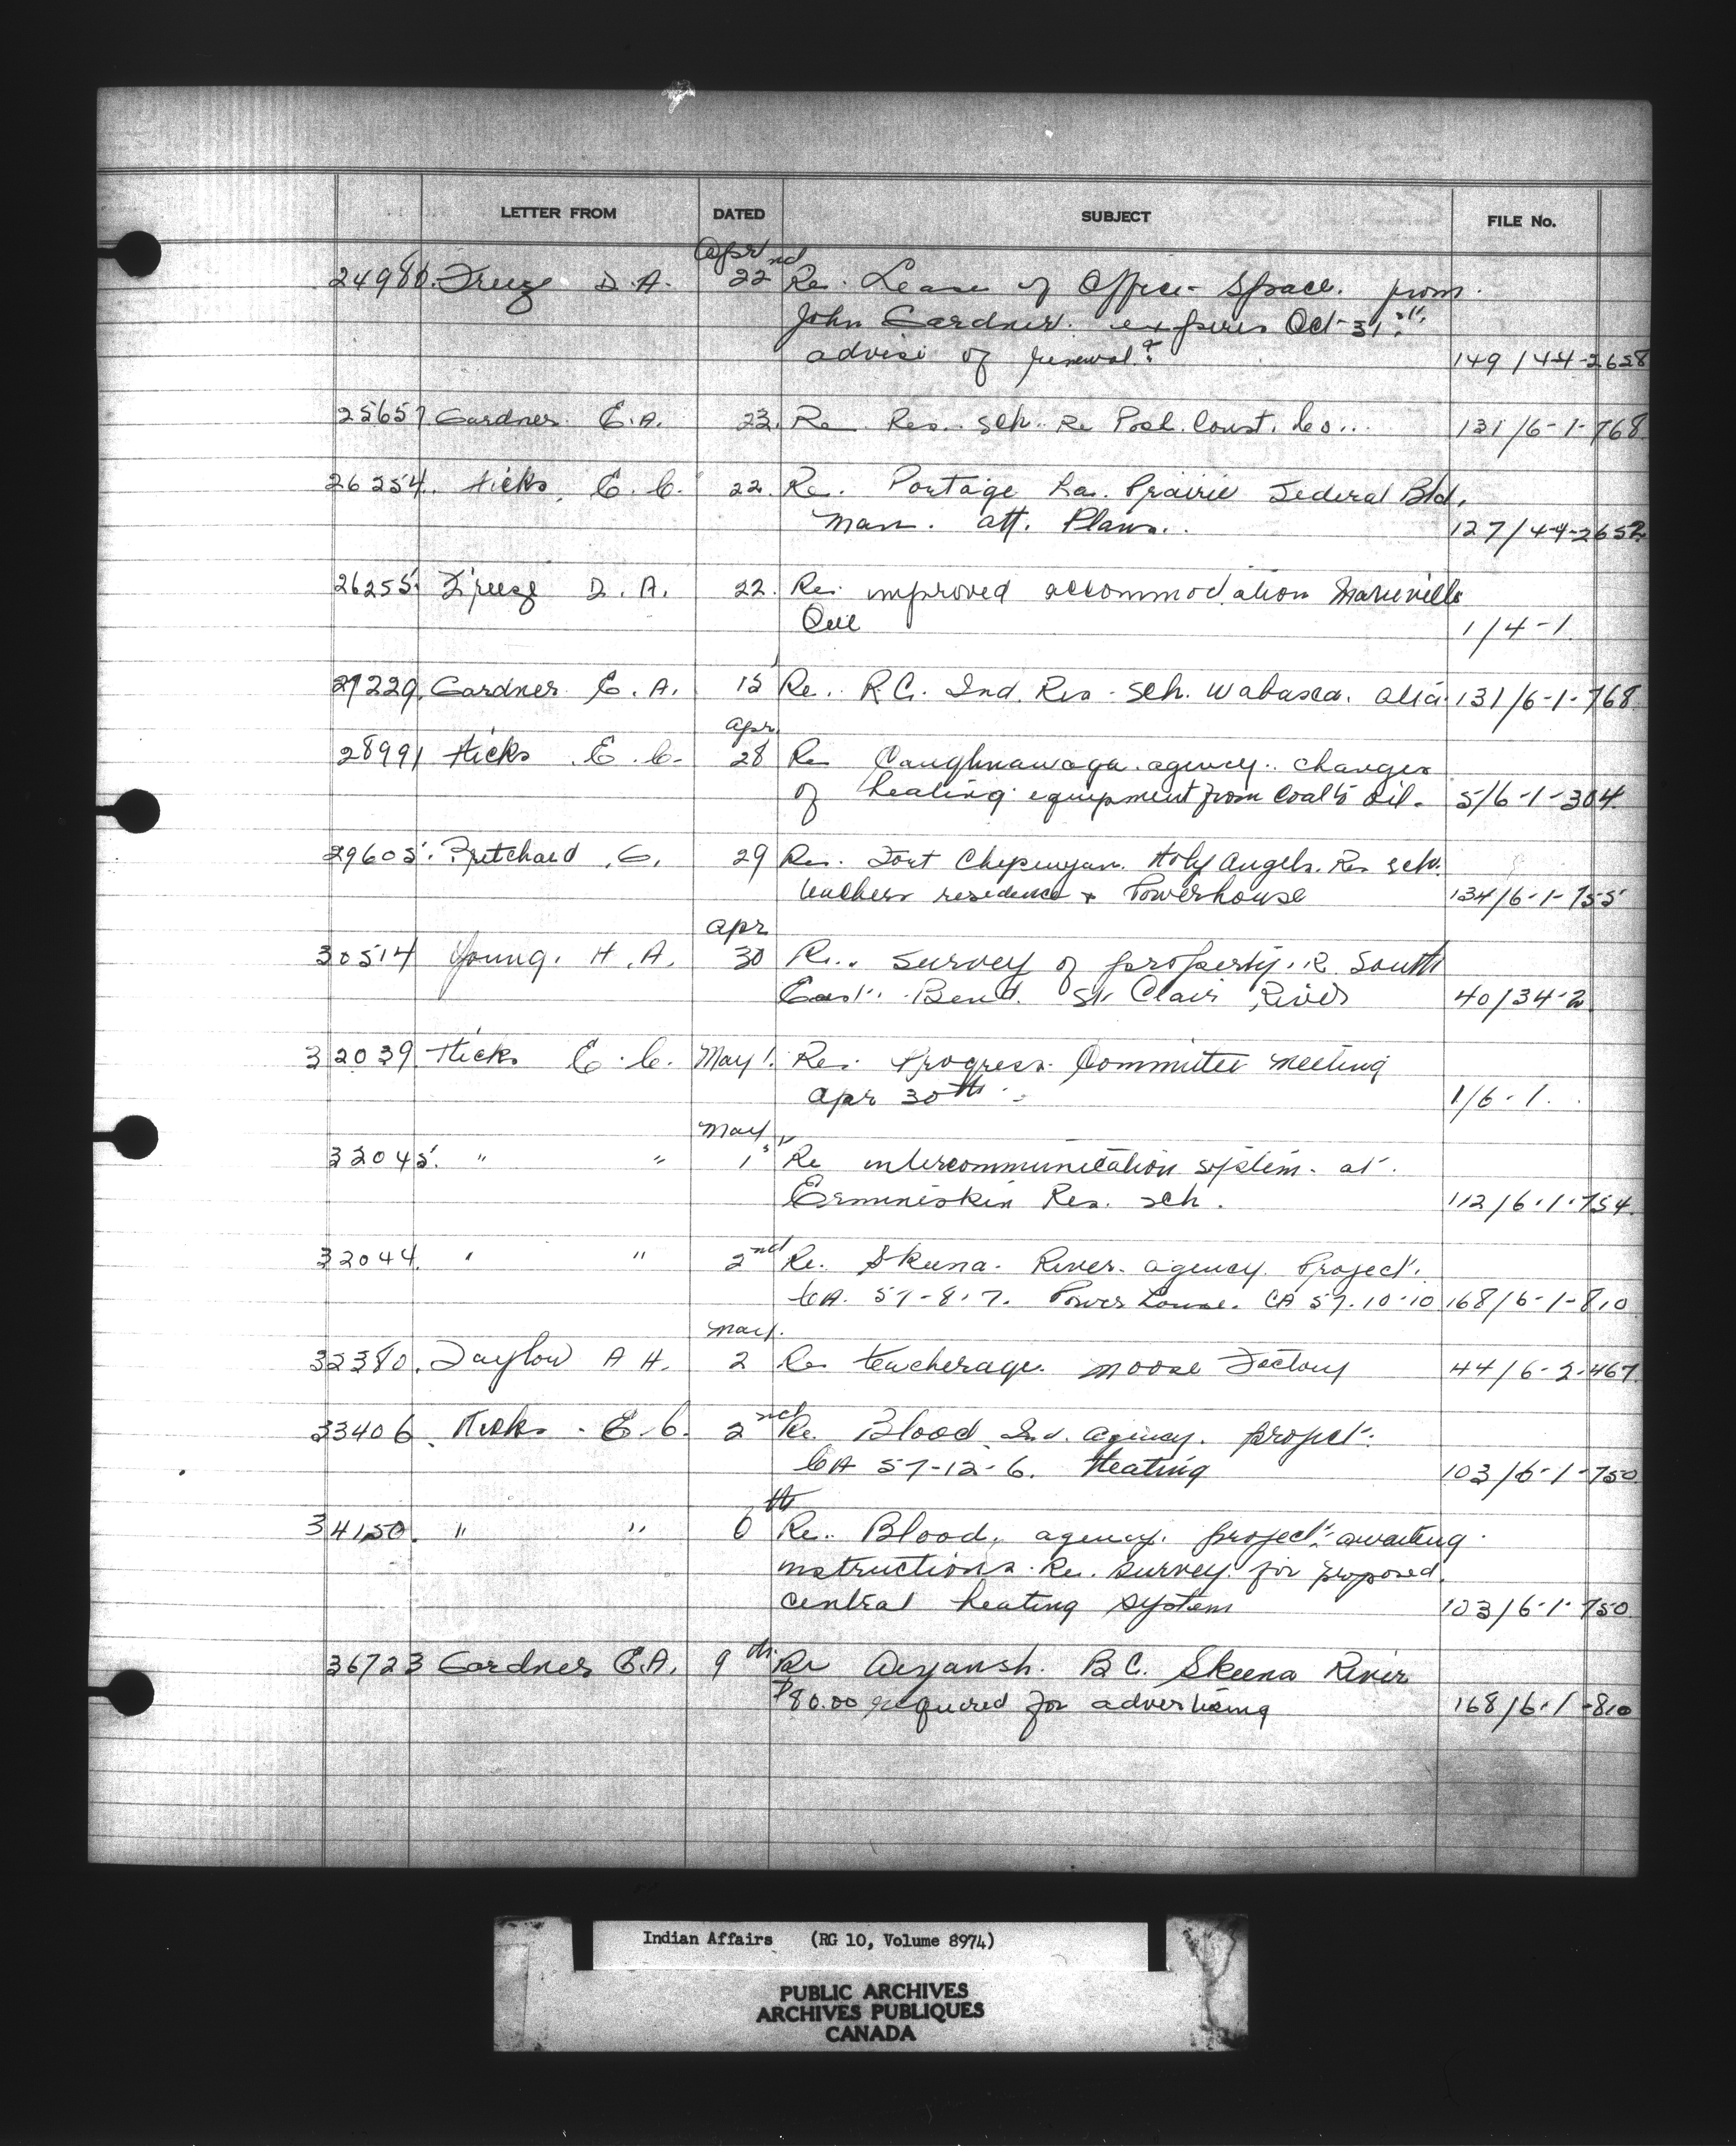 LETTER FROM DATED SUBJECT FILE No.
Apr
24980. Freeze D.A. 22nd Re. Lease of Office Space. from
John Gardner. expires Oct 31st.
advise of renewal? 149/44-2658
25657 Gardner E.A. 23. Re Res. Sch. Re Pool. Const. Co... 131/6-1-768
26254. Hicks. E.C. 22. Re. Portage La. Prairie Federal Bld.
Man. att. Plans.. 127/44-2652
26255. Freeze D.A. 22. Re. improved accommodation Marieville
Que 1/4-1.
27229. Gardner E.A. 15 Re. R.C. Ind. Res. Sch. Wabasca. Alta. 131/6-1-768
Apr.
28991 Hicks E.C. 28 Re Caughnawaga. agency.. changes
of heating equipment from Coal to Oil. 5/6-1-304
29605. Pritchard .G. 29 Re. Fort Chipewyan. Holy Angels. Res sch.
teachers residence + Powerhouse 134/6-1-755
Apr
30514 Young. H.A. 30 Re.. survey of property. R. South
East. Bend. St. Clair River 40/34-2
32039. Hicks E.C. May 1. Re. Progress. Committee Meeting
Apr 30th 1/6-1.
May
32045. " " 1st Re intercommunication system. at.
Ermineskin Res. Sch. 112/6-1-754
32044. " " 2nd Re. Skeena. River. agency. Project.
CA. 57-8-7. Power house. CA 57-10-10 168/6-1-810
May.
32380. Taylor A H. 2 Re teacherage. Moose Factory 44/6-2-467
33406. Hicks. E.C. 2nd Re. Blood. Ind. agency. project.
CA 57-12-6. Heating 103/6-1-750
34150. " " 6th Re.. Blood, agency. project. awaiting
instructions. Re. survey for proposed.
central heating system 103/6-1-750
36723 Gardner E.A. 9th Re Aiyansh. B.C. Skeena River
$80.00 required for advertising 168/6-1-810
Indian Affairs (RG 10, Volume 8974)
PUBLIC ARCHIVES
ARCHIVES PUBLIQUES
CANADA